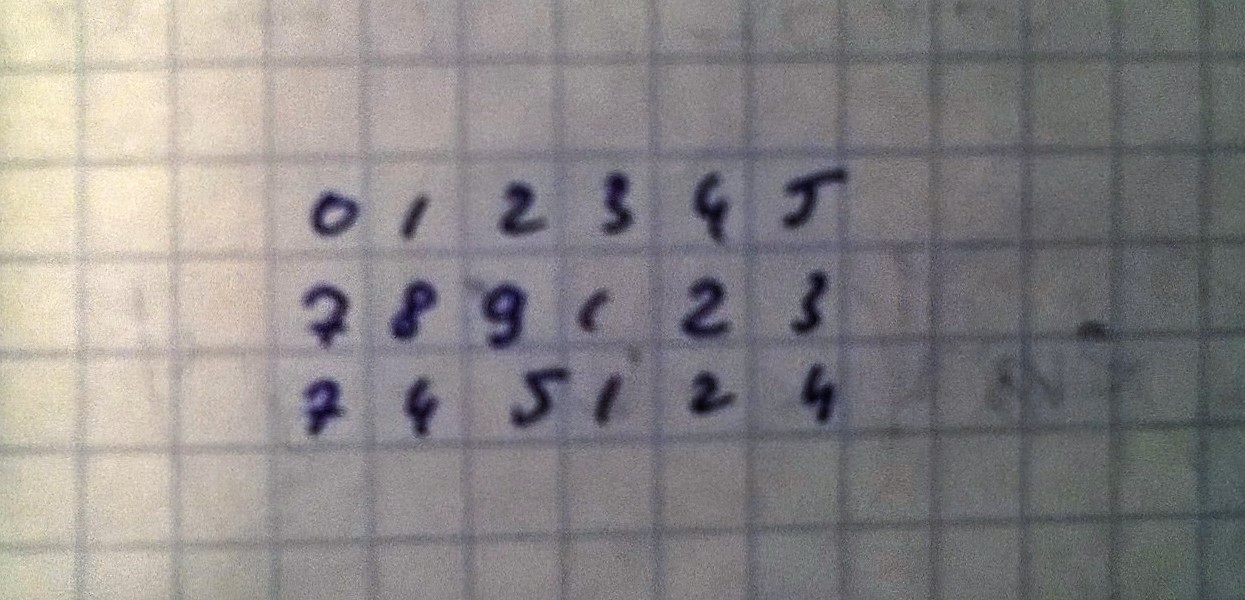 0 1 2 3 4 5
7 8 9 1 2 3
7 4 5 1 2 4